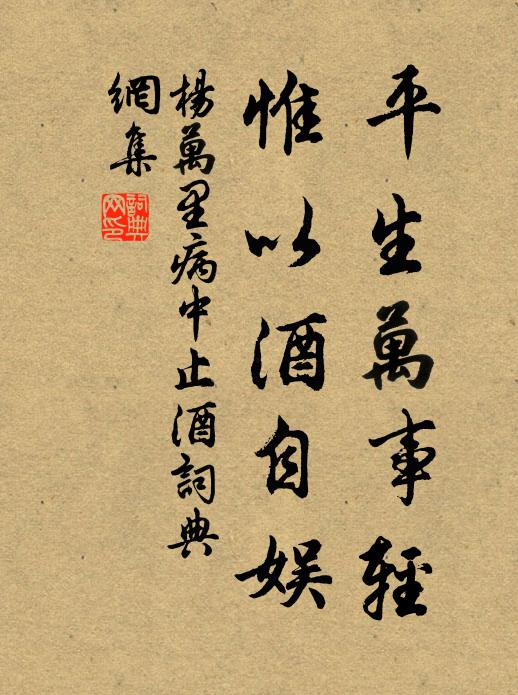 平生萬事輕
惟以酒自娱
楊萬里病中止酒詞典
網集
詞典
网印